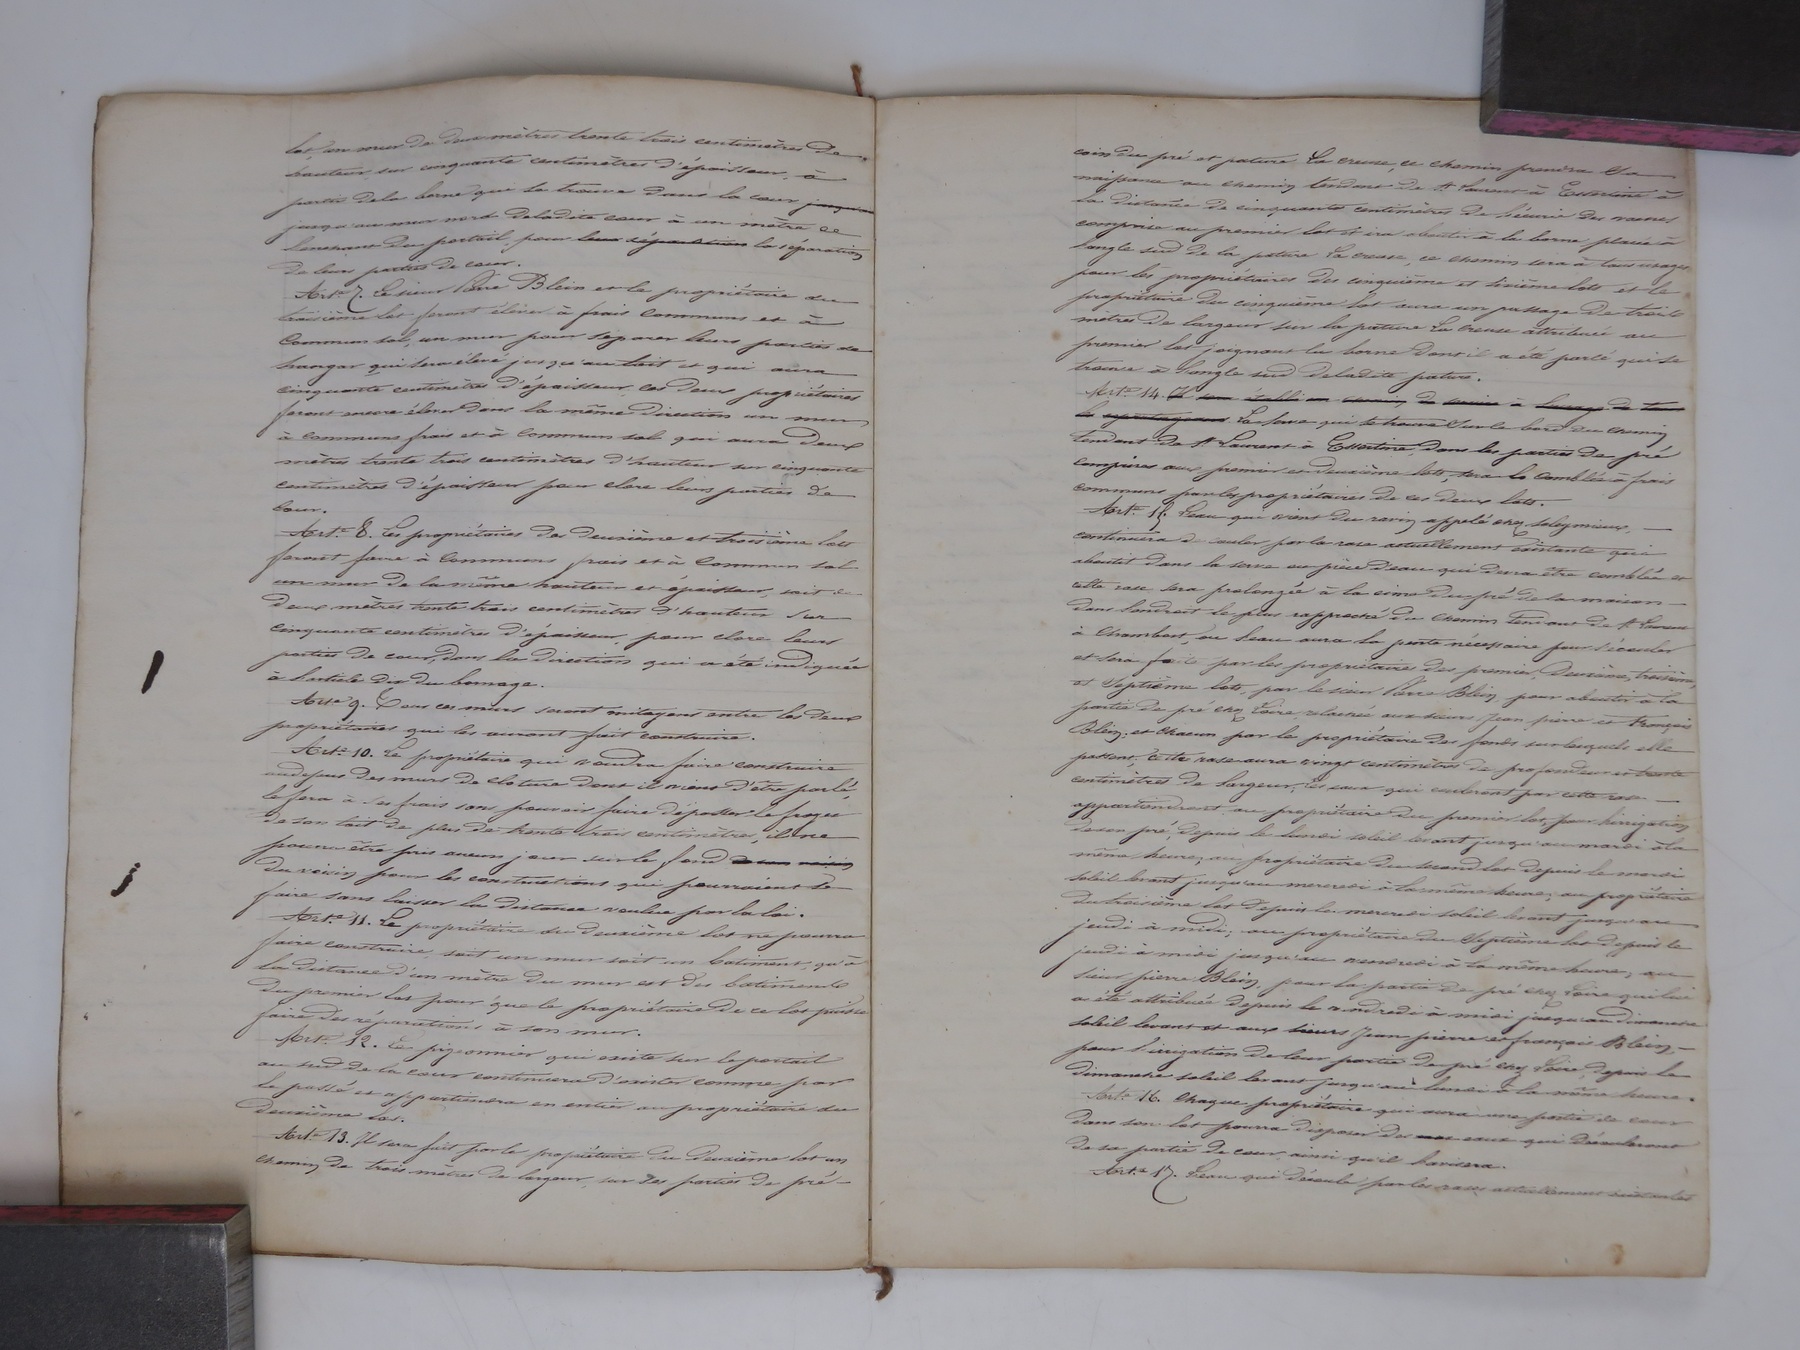 lot, un mur de deux mètres trente trois centimètres de
hauteur, sur cinquante centimètres d'épaisseur, à
partir de la borne qui se trouve dans la cour jusqu'au
jusqu'au mur nord de ladite cour à un mètre ce
levenant du portail, pour leur séparation la séparation
de leurs parties de cour.
Arte 7. Le sieur Pierre Blein et le propriétaire du
troisième lot feront élever à frais communs et à
commun sol, un mur pour séparer leurs parties de
hangar qui sera élevé jusqu'au toit et qui aura
cinquante centimètres d'épaisseur, ces deux propriétaires
feront encore élever dans la même direction un mur
à communs frais et à commun sol qui aura deux
mètres trente trois centimètres d'hauteur sur cinquante
centimètres d'épaisseur pour clore leurs parties de
cour.
Arte 8. Les propriétaires des deuxième et troisième lots
feront faire à communs frais et à commun sol
un mur de la même hauteur et épaisseur, soit de
deux mètres trente trois centimètres d'hauteur sur
cinquante centimètres d'épaisseur, pour clore leurs
parties de cour, dans la direction qui a été indiquée
à l'article dix du bornage.
Arte 9. Tous ces murs seront mitoyens entre les deux
propriétaires qui les auront fait construire.
Arte 10. Le propriétaire qui voudra faire construire
au dessus des murs de cloture dont il vient d'être parlé,
le fera à ses frais sans pouvoir faire dépasser le forget
de son toit de plus de trente trois centimètres, il ne
pourra être pris aucun jour sur le fond de son voisin
du voisin pour les constructions qui pourraient se
faire sans laisser la distance voulue par la loi.
Arte 11. Le propriétaire du deuxième lot ne pourra
faire construire, soit un mur soit un batiment, qu'à
la distance d'un mètre du mur est des batiments
du premier lot pour que le propriétaire de ce lot puisse
faire des réparations à son mur.
Arte 12. Le pigeonnier qui existe sur le portail
au sud de la cour continuera d'exister comme par
le passé et appartiendra en entier au propriétaire du
deuxième lot.
Arte 13. Il sera fait par le propriétaire du deuxième lot un
chemin de trois mètres de largeur, sur les parties de pré
coin du pré et pature La creuse, ce chemin prendra sa
naissance au chemin tendant de St Laurent à Essertine à
la distance de cinquante centimètres de l'écurie des vaches
comprise au premier lot et ira aboutir à la borne placée à
langle sud de la pature La creuse, ce chemin sera à tous usages
pour les propriétaires des cinquième et sixième lots et le
propriétaire du cinquième lot aura un passage de trois
mètres de largeur sur la pature La Creuse attribuée au
premier lot joignant la borne dont il a été parlé qui se
trouve à langle sud de ladite pature.
Arte 14. Il sera établi un
La serve qui se trouve sur le bord du chemin
tendant de St Laurent à Essertine, dans les parties de pré
comprises aux premier et deuxième lots, sera comblée à frais
communs par les propriétaires de ces deux lots.
Arte 15. L'eau qui vient du ravin appelé chez Soleymieux,
continuera de couler par la rase actuellement existante qui
aboutit dans la serve ou pièce d'eau qui devra être comblée et
cette rase sera prolongée à la cime du pré de la maison
dans lendroit le plus rapproché du chemin tendant de St Laurent
à Chambert, où l'eau aura la pente nécessaire pour s'écouler
et sera faite par les propriétaires des premier, deuxième, troisième,
et septième lots, par le sieur Pierre Blein pour aboutir à la
partie de pré chez Loire relachée aux sieurs Jean pierre et François
Blein, et chacun par le propriétaire des fonds sur lesquels elle
passera. Cette rase aura vingt centimètres de profondeur et trente
centimètres de largeur, les eaux qui couleront par cette rase
appartiendront au propriétaire du premier lot, pour l'irrigation
de son pré, depuis le lundi soleil levant jusqu'au mardi à la
même heure, au propriétaire du second lot depuis le mardi
soleil levant jusqu'au mercredi à la même heure, au propriétaire
du troisième lot depuis le mercredi soleil levant jusqu'au
jeudi à midi, au propriétaire du septième lot depuis le
jeudi à midi jusqu'au vendredi à la même heure, au
sieur pierre Blein, pour la partie de pré chez Loire qui lui
a été attribuée depuis le vendredi à midi jusqu'au dimanche
soleil levant et aux sieurs Jean pierre et françois Blein,
pour l'irrigation de leur partie de pré chez Loire, depuis le
dimanche soleil levant jusqu'au lundi à la même heure.
Arte 16. Chaque propriétaire qui aura une partie de cour
dans son lot pourra disposer des eaux qui découleront
de sa partie de cour, ainsi qu'il lavisera.
Arte 17. L'eau qui découle par les rases actuellement existantes